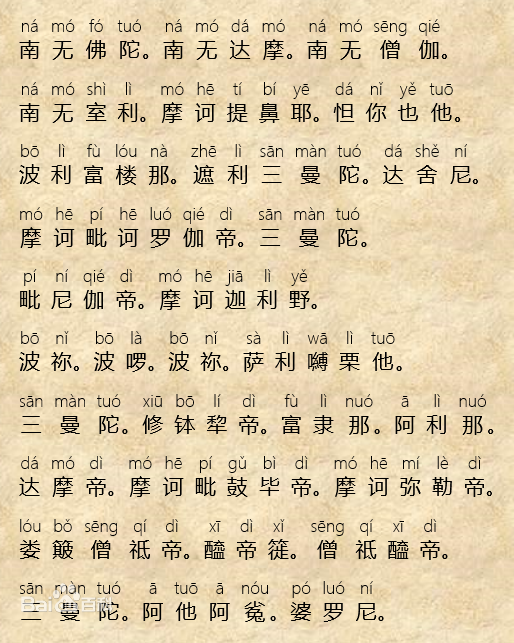 ná mó fó tuó ná mó dá mó ná mó sēng qié
南无佛陀。南无达摩。南无僧伽。
ná mó shì lì mó hē tí bí yē dá nǐ yě tuō
南无室利。摩诃提鼻耶。怛你也他。
bō lì fù lóu nà zhē lì sān màn tuó dá shě ní
波利富楼那。遮利三曼陀。达舍尼。
mó hē pí hē luó qié dì sān màn tuó
摩诃毗诃罗伽帝。三曼陀。
pí ní qié dì mó hē jiā lì yě
毗尼伽帝。摩诃迦利野。
bō nǐ bō là bō nǐ sà lì wā lì tuō
波祢。波啰。波祢。萨利嚩栗他。
sān màn tuó xiū bō lí dì fù lì nuó ā lì nuó
三曼陀。修钵犁帝。富隶那。阿利那。
dá mó dì mó hē pí gǔ bì dì mó hē mí lè dì
达摩帝。摩诃毗鼓毕帝。摩诃弥勒帝。
lóu bǒ sēng qí dì xī dì xǐ sēng qí xī dì
娄簸僧祗帝。醯帝簁。僧祗醯帝。
sān màn tuó ā tuō ā nóu pó luó ní
三曼陀。阿他阿㝹。婆罗尼。
Bai 百科